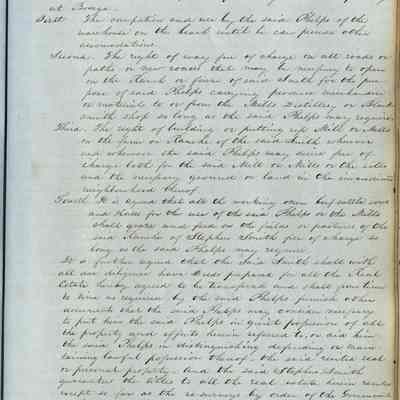 at Bodega.
First The occupation and use by the said Phelps of the
warehouse on the beach until he can procure other
accomodations.
Second. The right of way free of charge on all roads or
paths or new roads that may be necessary to open
on the Ranch or farm of said Smith for the pur
pose of said Phelps carrying produce merchandise
or materials to or from the Mills Distillery or Black
smith shop so long as the said Phelps may require
Third. The right of building or putting up Mill or Mills
on the farm or Rancho of the said Smith wherever
and whenever the said Phelps may desire free of
charge both for the said Mill or Mills or the sites
and the necessary ground or land in the immediate
neighbourhood thereof.
Fourth It is agreed that all the working oxen beef cattle
and for the use of the said Phelps or the Mills
shall graze and feed on the fields or pastures of the
said Rancho of Stephen Smith free of charge so
long as the said Phelps may require.
It is further agreed that the said Smith shall with
all due diligence have Deeds prepared for all the Real
Estate hereby agreed to be transferred and shall from time
to time as required by the said Phelps furnish other
documents that the said Phelps may consider necessary
to put him the said Phelps in quiet possession of all
the property and effects herein referred to, or aid him
the said Phelps in distinguishing defending or main
taining lawful possession thereof the said rented real
or personal property. And the said Stephen Smith
guarantees the titles to all the real estate herein
except so far as the by order of the Government